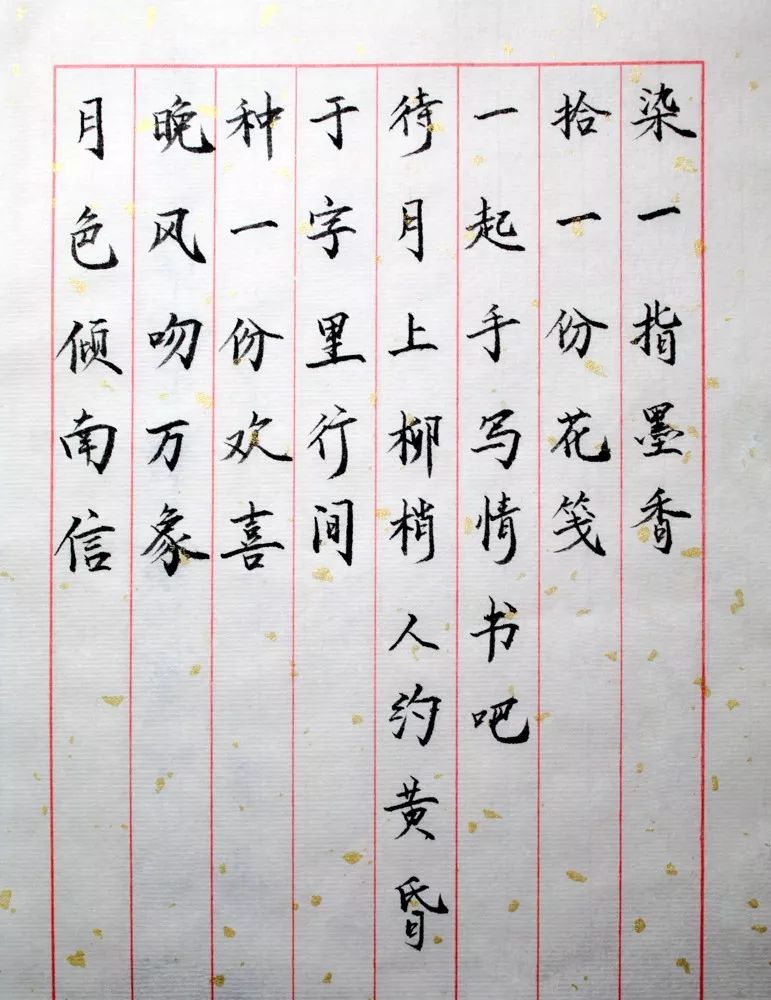 染一指墨香
拾一份花笺
一起手写情书吧
待月上柳梢人约黄昏
于字里行间
种一份欢喜
晚风吻万象
月色倾南信